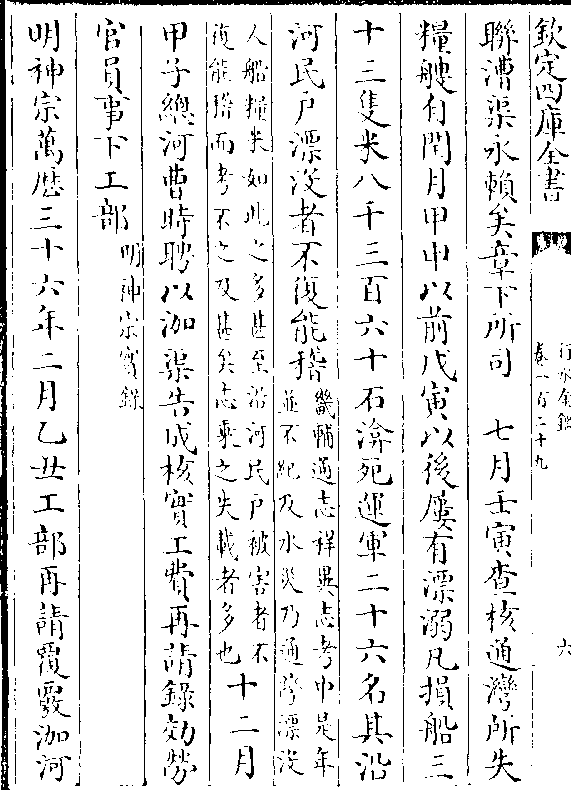 欽定四庫全書
行水金鑑
卷一百二十九
六
聯漕渠永賴矣章下所司　七月壬寅查核通灣所失
糧艘自閏月甲申以前戊寅以後屢有漂溺凡損船三
十三隻米八千三百六十石渰死運軍二十六名其沿
河民戶漂没者不復能稽
畿輔通志祥異志考中是年
並不紀及水災乃通灣漂没
人船糧米如此之多甚至沿河民戶被害者不
復能稽而考不之及甚矣志乘之失載者多也
十二月
甲子總河曹時聘以泇渠告成核實工費再請錄効勞
官員事下工部
明神宗實錄
明神宗萬歷三十六年二月乙丑工部再請覆覈泇河